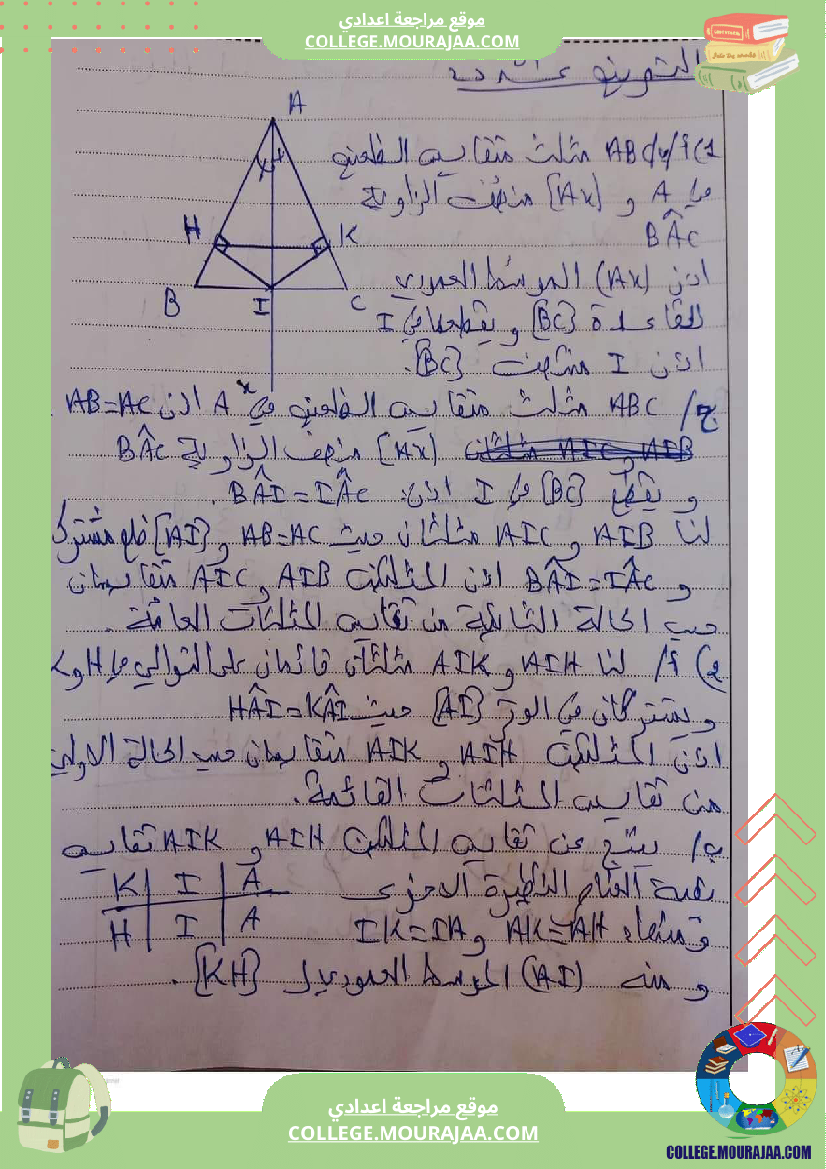 موقع مراجعة اعدادي
COLLEGE.MOURAJAA.COM
التمرين عـدد
A
H
K
B
I
C
x
1) أ/ب/ ABC مثلث متقايس الضلعين
في A و [Ax) منصف الزاوية
BÂC
اذن (Ax) الموسط العمودي
للقاعدة [BC] و يقطعها في I
اذن I منتصف [BC].
ج/ ABC مثلث متقايس الضلعين في A اذن AB=AC
[Ax) منصف الزاوية BÂC
و يقطع [BC] في I اذن: BÂI = IÂC.
لنا AIB و AIC مثلثان حيث AB=AC و [AI] ضلع مشترك
و BÂI = IÂC اذن المثلثين AIB و AIC متقايسان
حسب الحالة الثانية من تقايس المثلثات العامة.
2) أ/ لنا AIH و AIK مثلثان قائمان على التوالي في H و K
و يشتركان في الوتر [AI] حيث HÂI = KÂI
اذن المثلثين AIH و AIK متقايسان حسب الحالة الاولى
من تقايس المثلثات القائمة.
ب/ ينتج عن تقايس المثلثين AIH و AIK تقايس
بقية العناصر النظيرة الاخرى
K | I | A
H | I | A
و منها AK=AH و IK=IH
و منه (AI) الموسط العمودي لـ [KH].
موقع مراجعة اعدادي
COLLEGE.MOURAJAA.COM
COLLEGE.MOURAJAA.COM